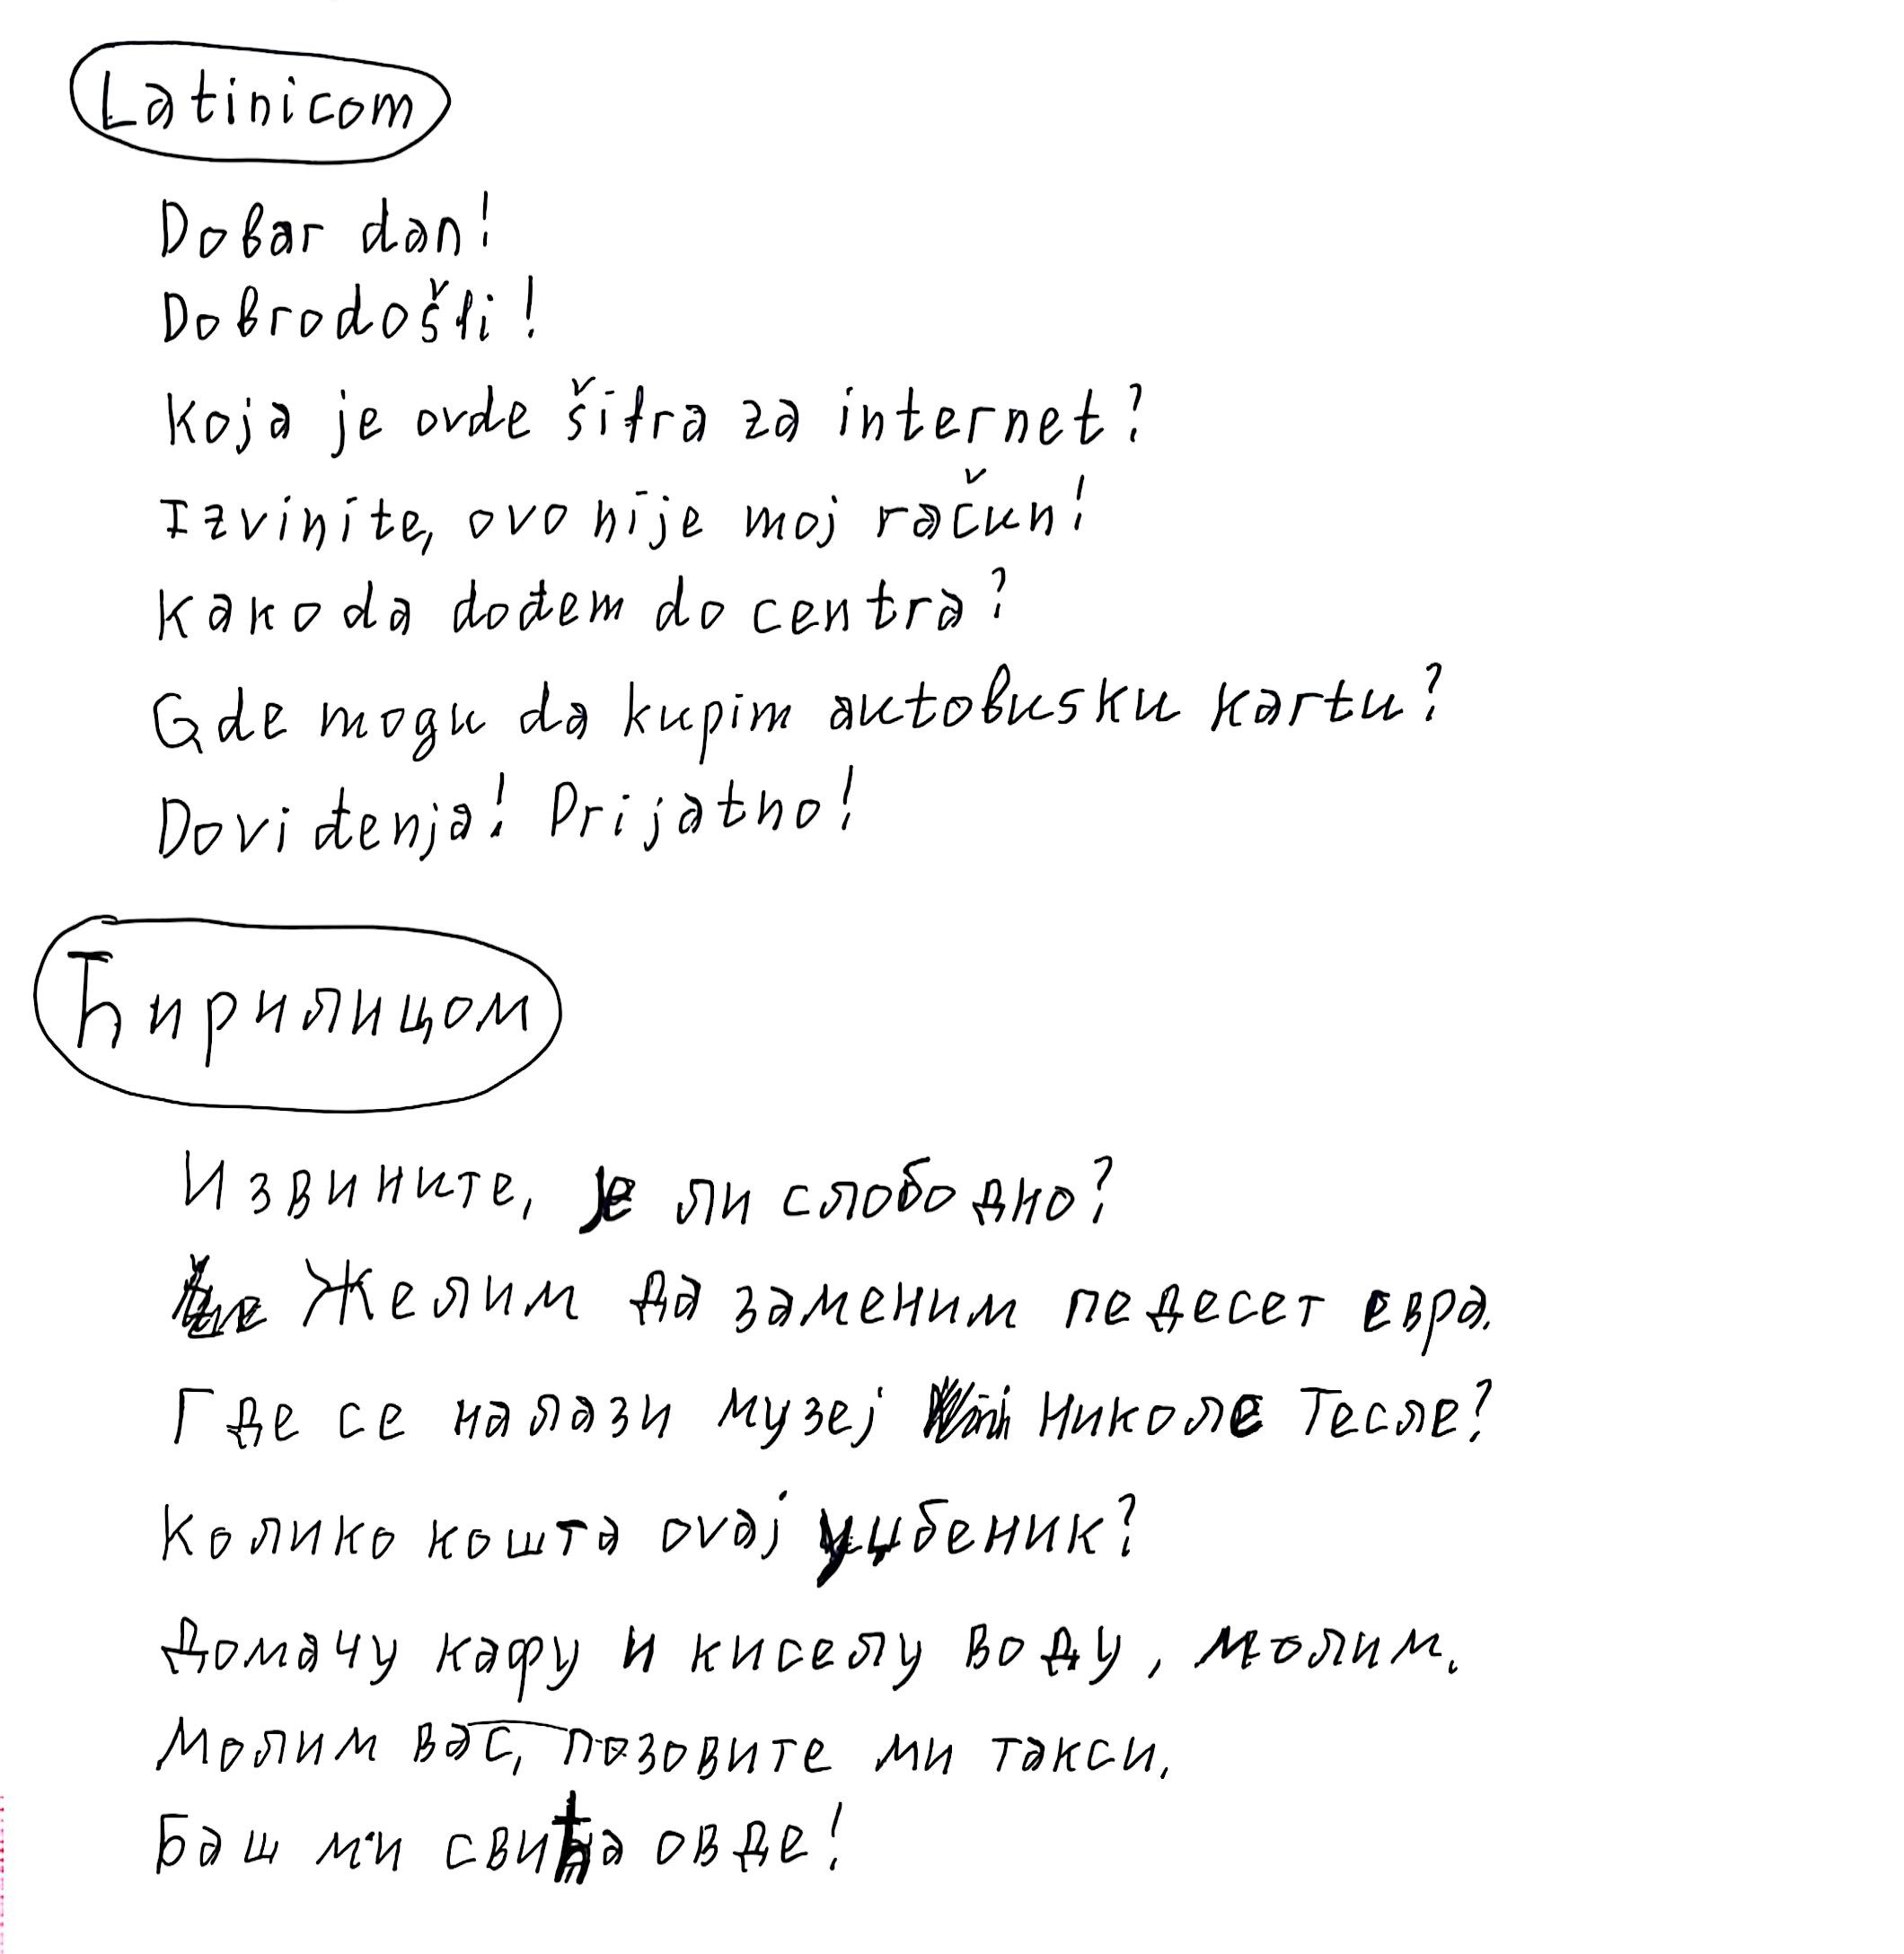 Latinicom
Dobar dan!
Dobrodošli!
Koja je ovde šifra za internet?
Izvinite, ovo nije moj račun!
Kako da dođem do centra?
Gde mogu da kupim autobusku kartu?
Doviđenja! Prijatno!
Ћирилицом
Извините, је ли слободно?
Желим да заменим педесет евра.
Где се налази музеј Николе Тесле?
Колико кошта ovaj уџбеник?
Домачу кафу и киселу воду, молим.
Молим вас, позовите ми такси.
Баш ми свиђа овде!